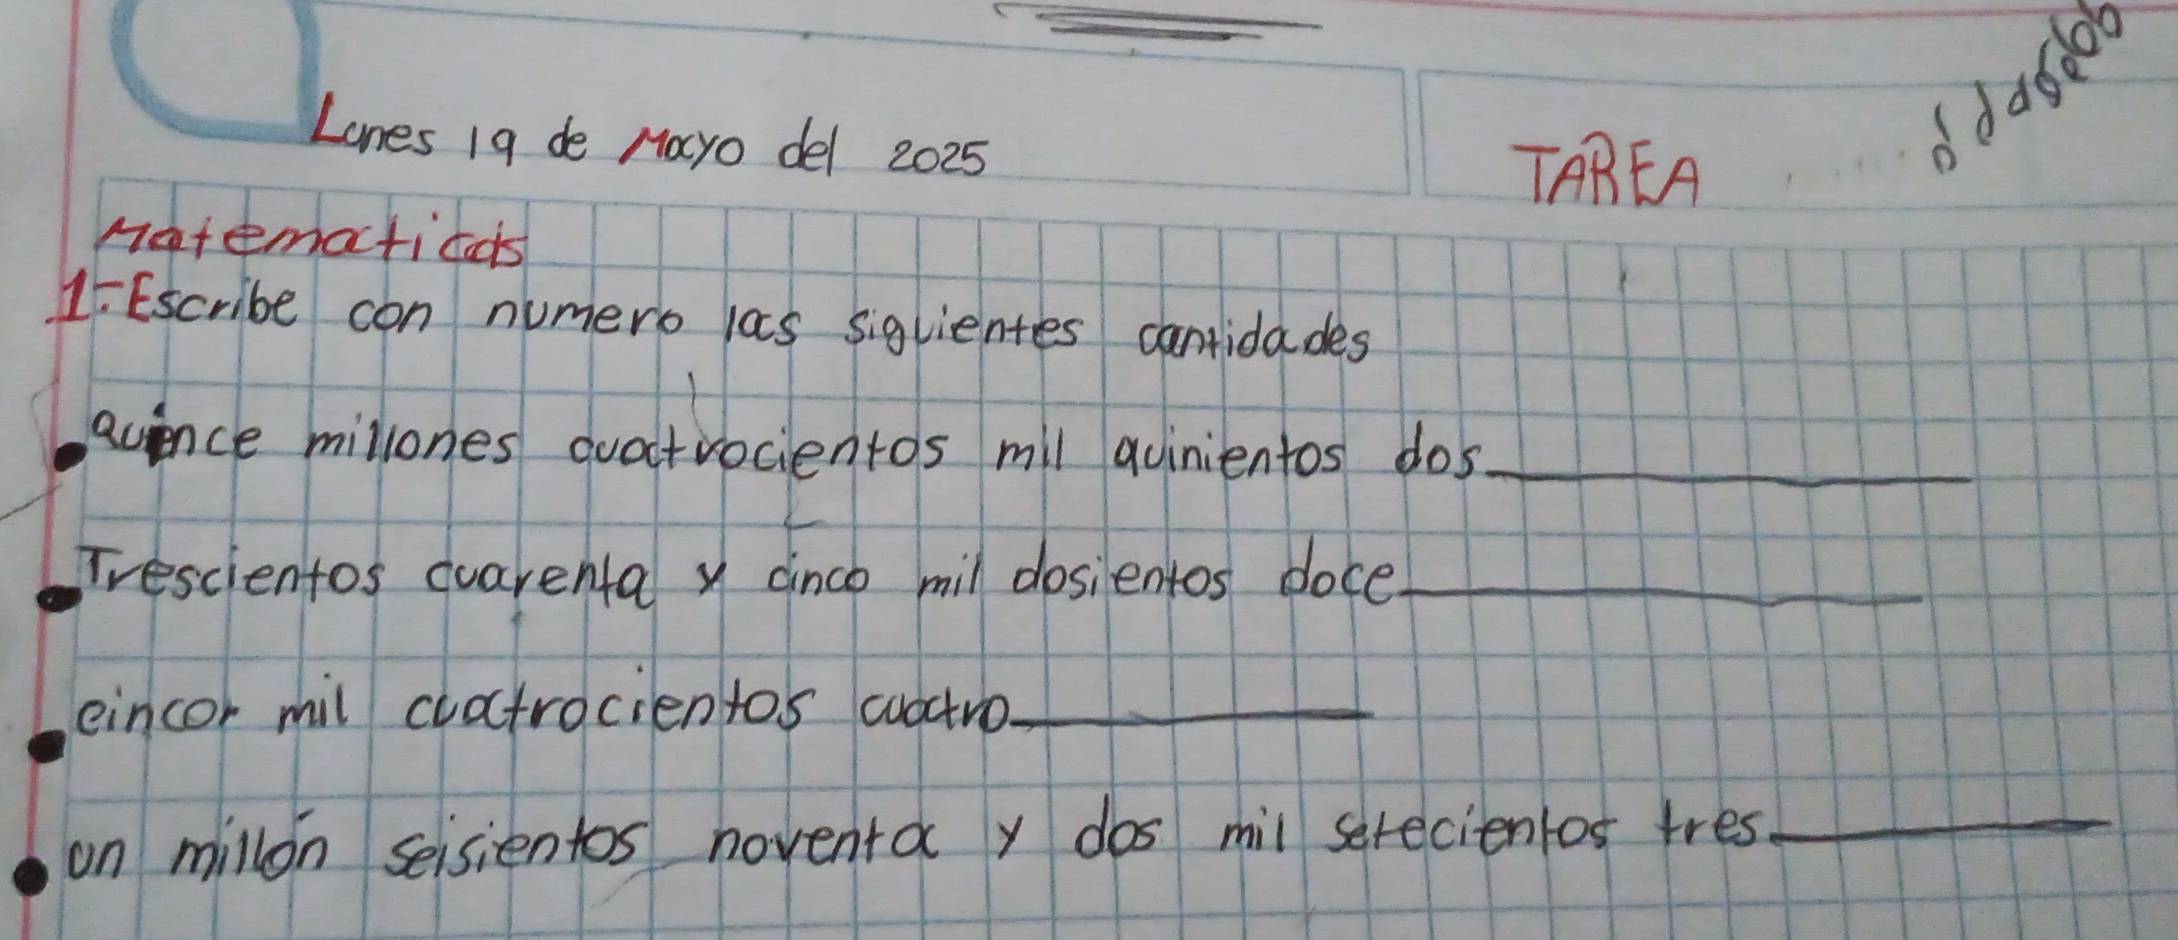 Lunes 19 de Mayo del 2025
TAREA
Matematicas
1-Escribe con numero las siguientes cantidades
Quince millones cuatrocientos mil quinientos dos
Trescientos cuarenta y cinco mil dosientos doce
cincor mil cuatrocientos cuatro
un millón seisientos noventa y dos mil setecientos tres